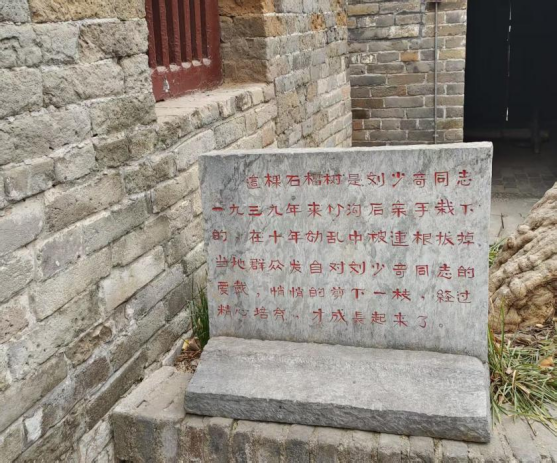 这棵石榴树是刘少奇同志
一九三九年来竹沟后亲手栽下
的，在十年动乱中被连根拔掉
当地群众发自对刘少奇同志的
爱戴，悄悄的剪下一枝，经过
精心培养，才成长起来了。